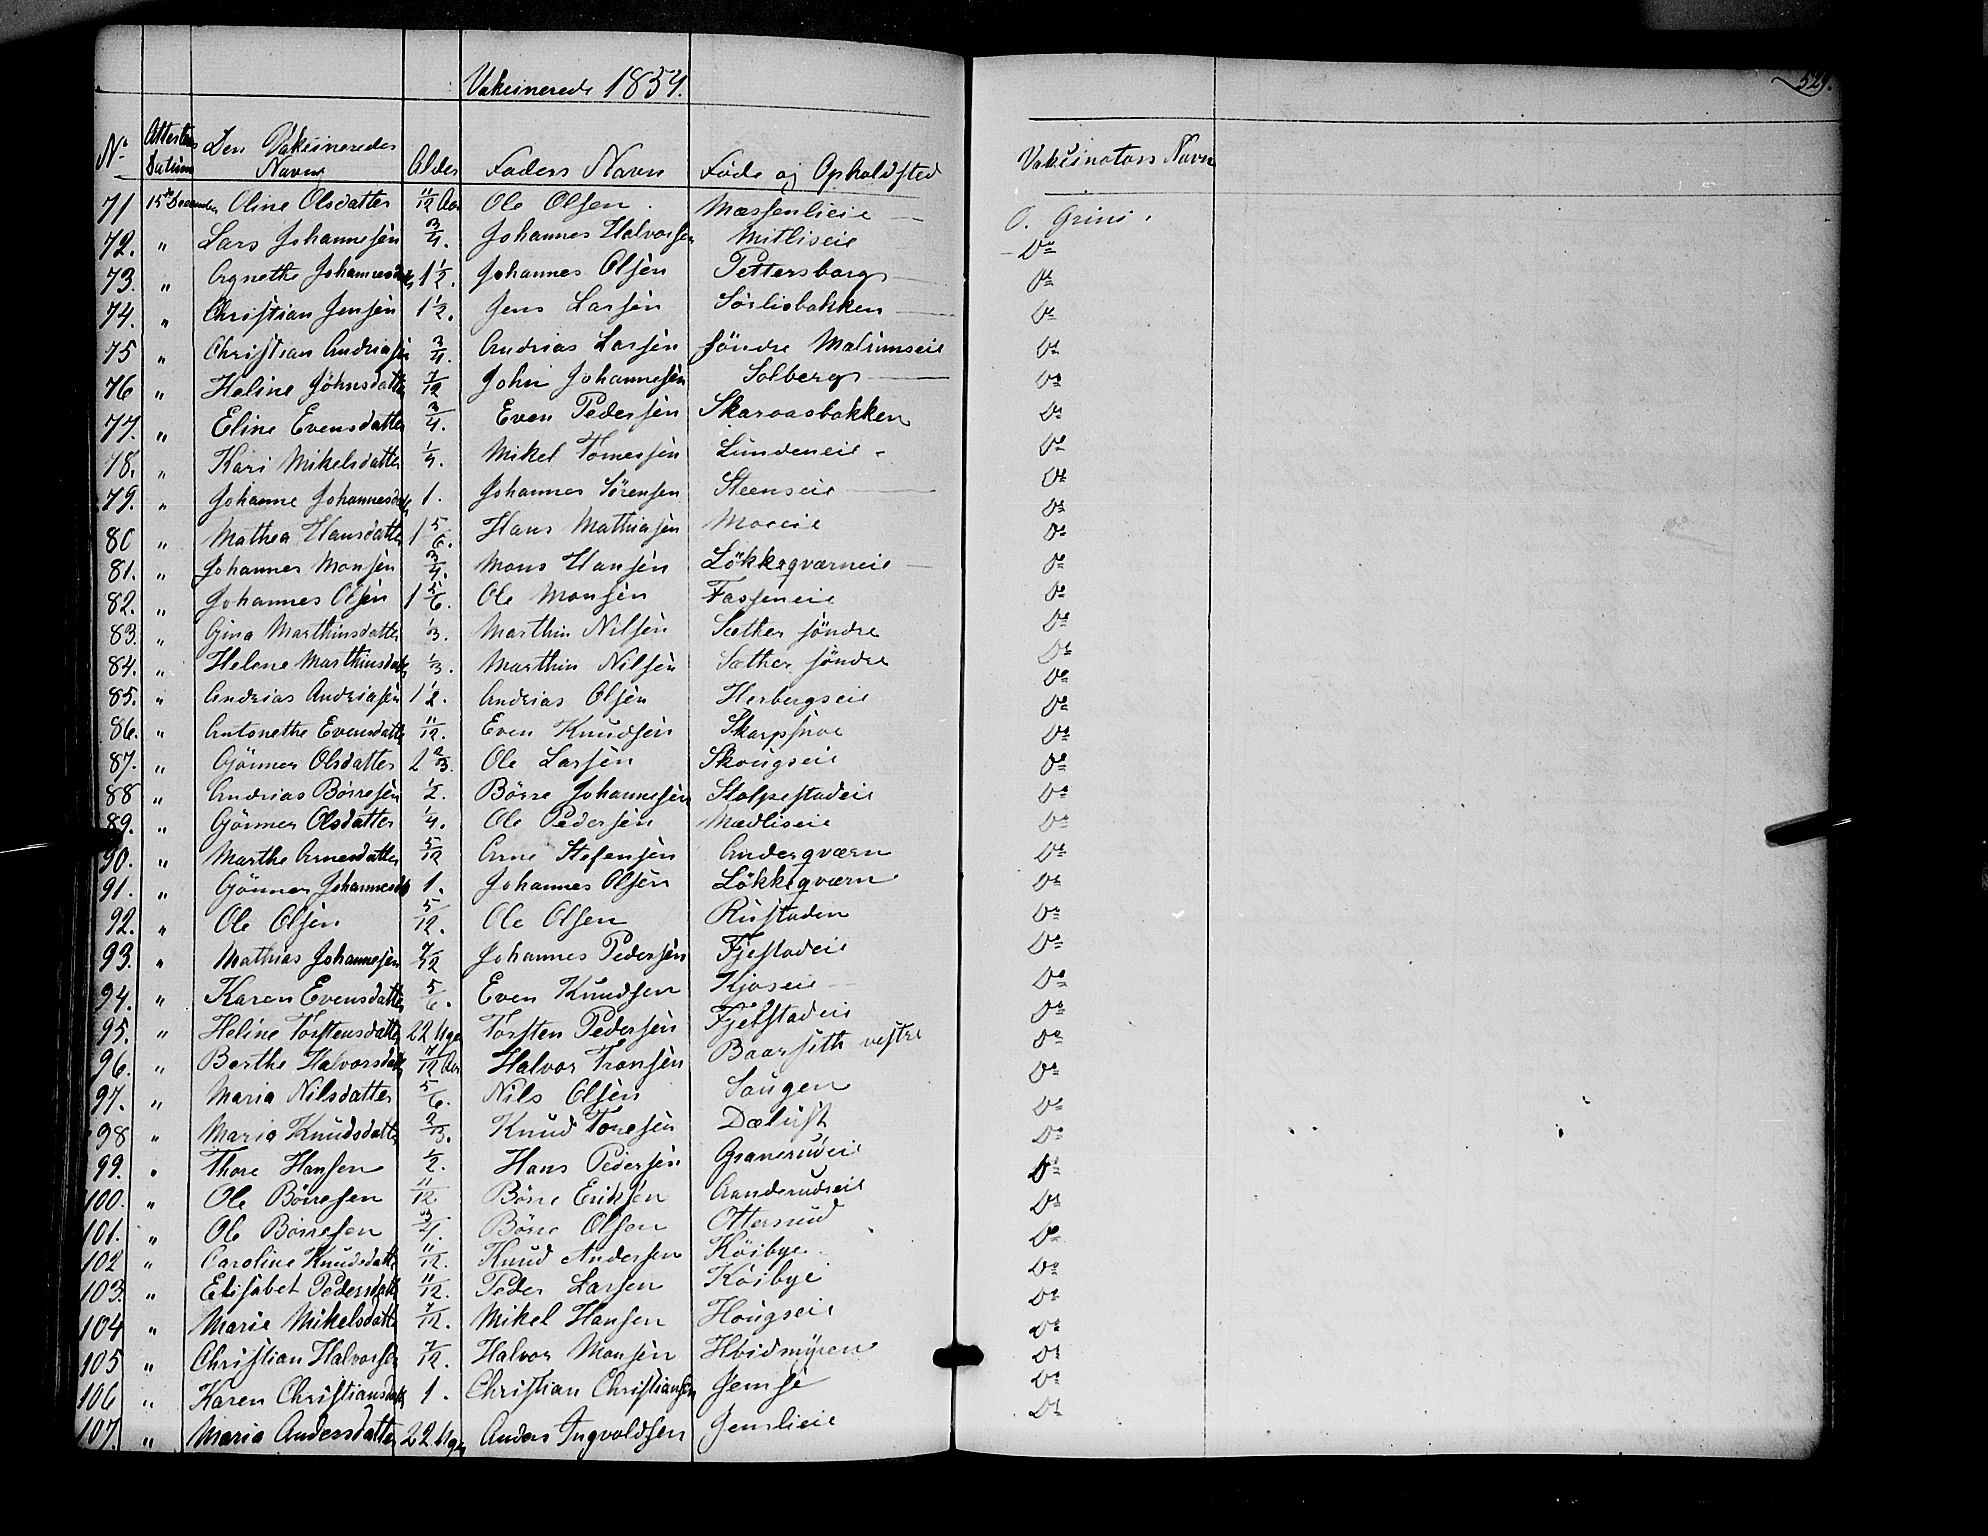 Vakcinerede 1854.
529.
No Attestens Datum Den Vakcineredes Navn Alder Faders Navn Føde og Opholdsted Vakcinators Navn
71 15de December Oline Olsdatter 11/12 Aar Ole Olsen Mæssenlieie O. Grini.
72. " Lars Johannesen 3/4. Johannes Halvorsen Mitliseie Do
73. " Agnethe Johannesdatter 1 1/2. Johannes Olsen Pettersborg Do
74. " Christian Jensen 1 1/2. Jens Larsen Sörlisbakken Do
75 " Christian Andriasen 3/4. Andrias Larsen söndre Matrumseie Do
76 " Heline Johnsdatter 7/12 John Johannesen Solberg Do
77. " Eline Evensdatter 3/4. Even Pedersen Skaroasbakken Do
78. " Kari Mikelsdatter 1/4. Mikel Tomessen Lundeneie Do
79. " Johanne Johannesdatter 1. Johannes Sörensen Steenseie Do
80 " Mathea Hansdatter 1 5/6. Hans Mathiasen Moeeie Do
81. " Johannes Monsen 3/4. Mons Hansen Lökkeqværneie Do
82. " Johannes Olsen 1 5/6. Ole Monsen Fasseneie Do
83. " Gina Marthinsdatter 1/3. Marthin Nilsen Sæther söndre Do
84. " Helene Marthinsdatter 1/3. Marthin Nilsen Sæther söndre Do
85. " Andrias Andriasen 1 1/2. Andrias Olsen Herbergseie Do
86. " Antonethe Evensdatter 11/12. Even Knudsen Skarpsnoe Do
87. " Gönner Olsdatter 2 2/3. Ole Larsen Skougseie Do
88 " Andrias Börresen 1/2. Börre Johannesen Stolpestadeie Do
89. " Gönner Olsdatter 1/4. Ole Pedersen Mædliseie Do
90. " Marthe Arnesdatter 5/12 Arne Stefensen Anderqværn Do
91. " Gönner Johannesdatter 1. Johannes Olsen Lökkeqværn Do
92. " Ole Olsen 5/12. Ole Olsen Rustaden Do
93. " Mathias Johannesen 7/12 Johannes Pedersen Fjestadeie Do
94. " Karen Evensdatter 5/6. Even Knudsen Kjoseie Do
95. " Heline Torstensdatter 22 Uger Torsten Pedersen Fjelstadeie Do
96. " Berthe Halvorsdatter 11/12 Aar Halvor Fransen Baarseth vestre Do
97. " Maria Nilsdatter 5/6. Nils Olsen Saugen Do
98 " Maria Knudsdatter 2/3. Knud Tonesen Dælust Do
99. " Thore Hansen 1/2. Hans Pedersen Granerudeie Do
100. " Ole Börresen 11/12 Börre Eriksen Aanderudseie Do
101. " Ole Börresen 3/4. Börre Olsen Ottersrud Do
102 " Caroline Knudsdatter 11/12. Knud Andersen Köibye Do
103. " Elisabet Pedersdatter 11/12. Peder Larsen Köibye Do
104 " Marie Mikelsdatter 7/12. Mikel Hansen Hougseie Do
105 " Christian Halvorsen 7/12. Halvor Monsen Hvidmyren Do
106 " Karen Christiansdatter 1. Christian Christiansen Jemse Do
107. " Maria Andersdatter 22 Uger Anders Ingvoldsen Jemslieie Do